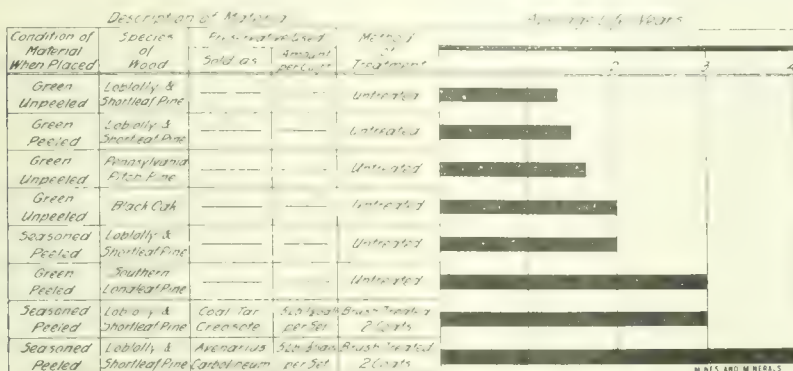 Description of Material
Average Life Years
Condition of Material When Placed
Species of Wood
Preservative Used
Sold as
Amount per Cu.Ft.
Method of Treatment
2 3 4
Green Unpeeled Loblolly & Shortleaf Pine Untreated
Green Peeled Loblolly & Shortleaf Pine Untreated
Green Unpeeled Pennsylvania Pitch Pine Untreated
Green Unpeeled Black Oak Untreated
Seasoned Peeled Loblolly & Shortleaf Pine Untreated
Green Peeled Southern Longleaf Pine Untreated
Seasoned Peeled Loblolly & Shortleaf Pine Coal Tar Creosote per Set Brush Treated 2 Coats
Seasoned Peeled Loblolly & Shortleaf Pine Avenarius Carbolineum per Set Brush Treated 2 Coats
MINES AND MINERALS